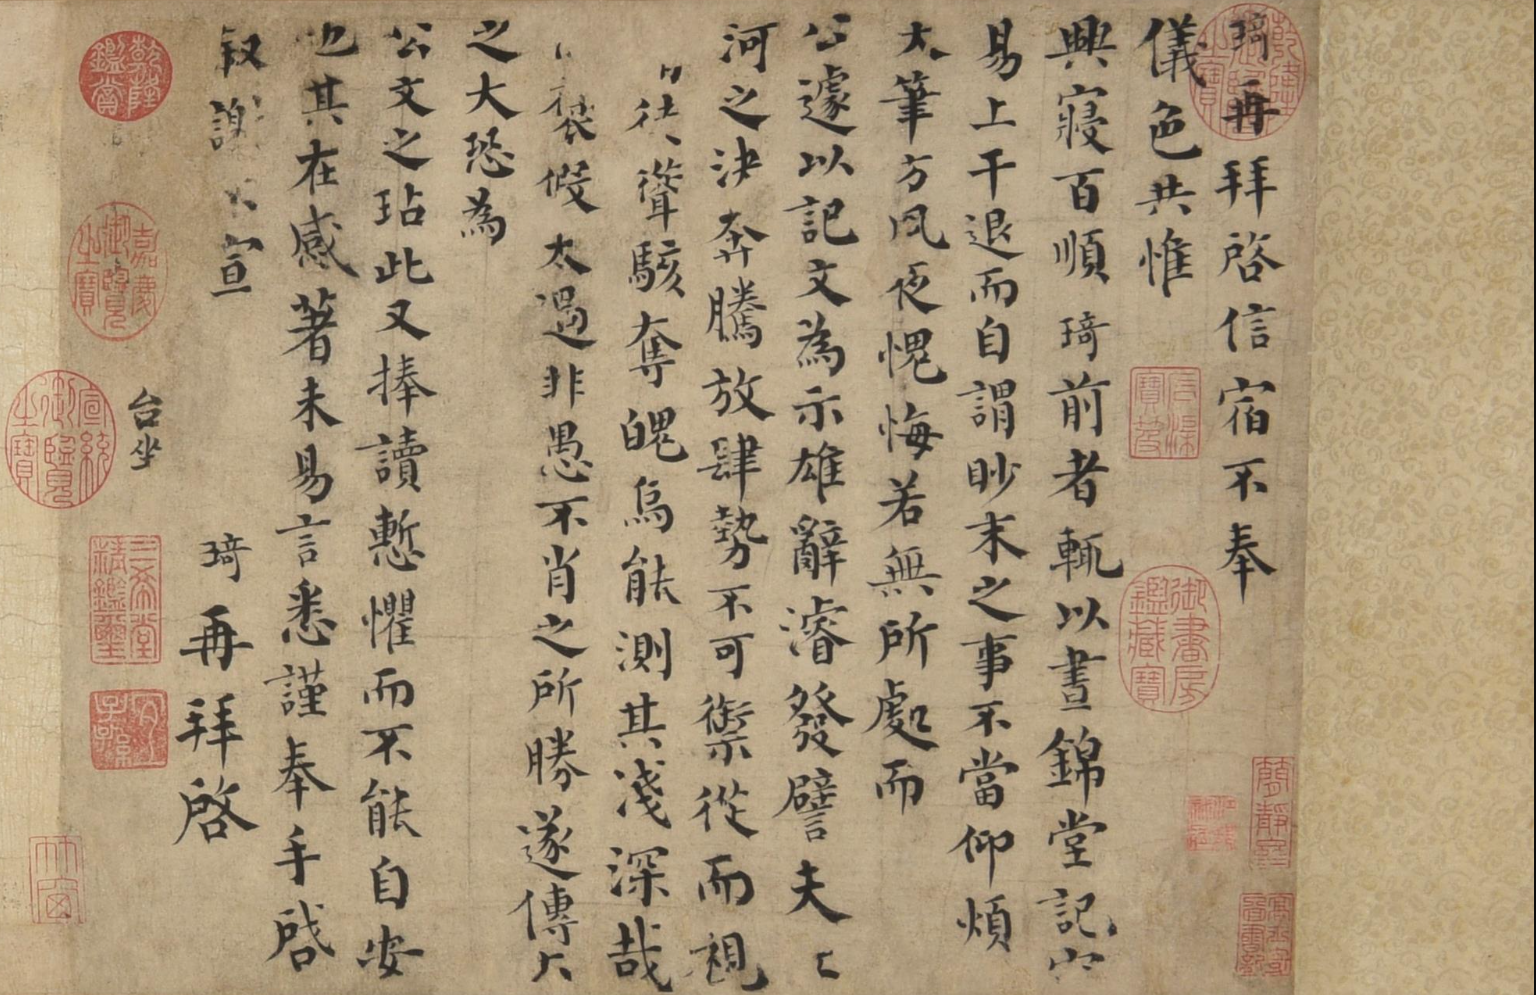 琦再拜啓信宿不奉
儀色共惟
興寢百順琦前者輒以晝錦堂記
易上干退而自謂眇末之事不當仰煩
大筆方夙夜愧悔若無所處而
公遽以記文為示雄辭濬發譬夫
河之決奔騰放肆勢不可禦從而視
徒聳駭奪魄烏能測其淺深哉
褒假太過非愚不肖之所勝遂傳
之大恐為
公文之玷此又捧讀慙懼而不能自安
也其在感著未易言悉謹奉手啓
叙謝宣
琦再拜啓
台坐
乾隆御覽之寶
石渠寶笈
御書房鑑藏寶
乾隆鑑賞
嘉慶御覽之寶
宣統御覽之寶
三希堂精鑑璽
宜子孫